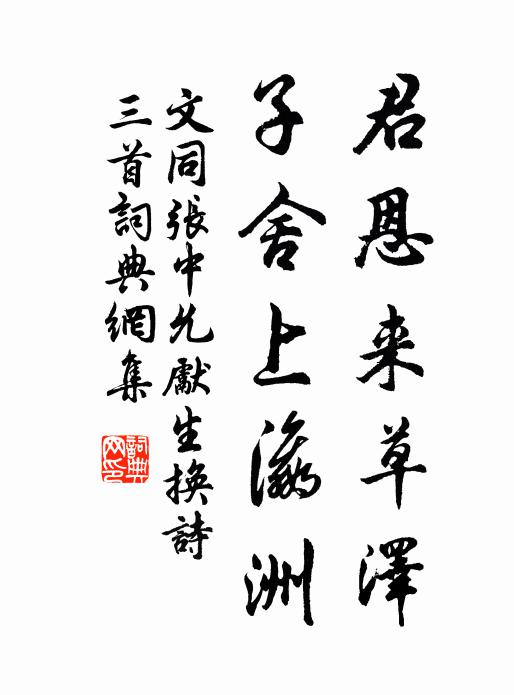 君恩来草澤
子舍上瀛洲
文同張中允獻生挽詩
三首詞典網集
詞典網印